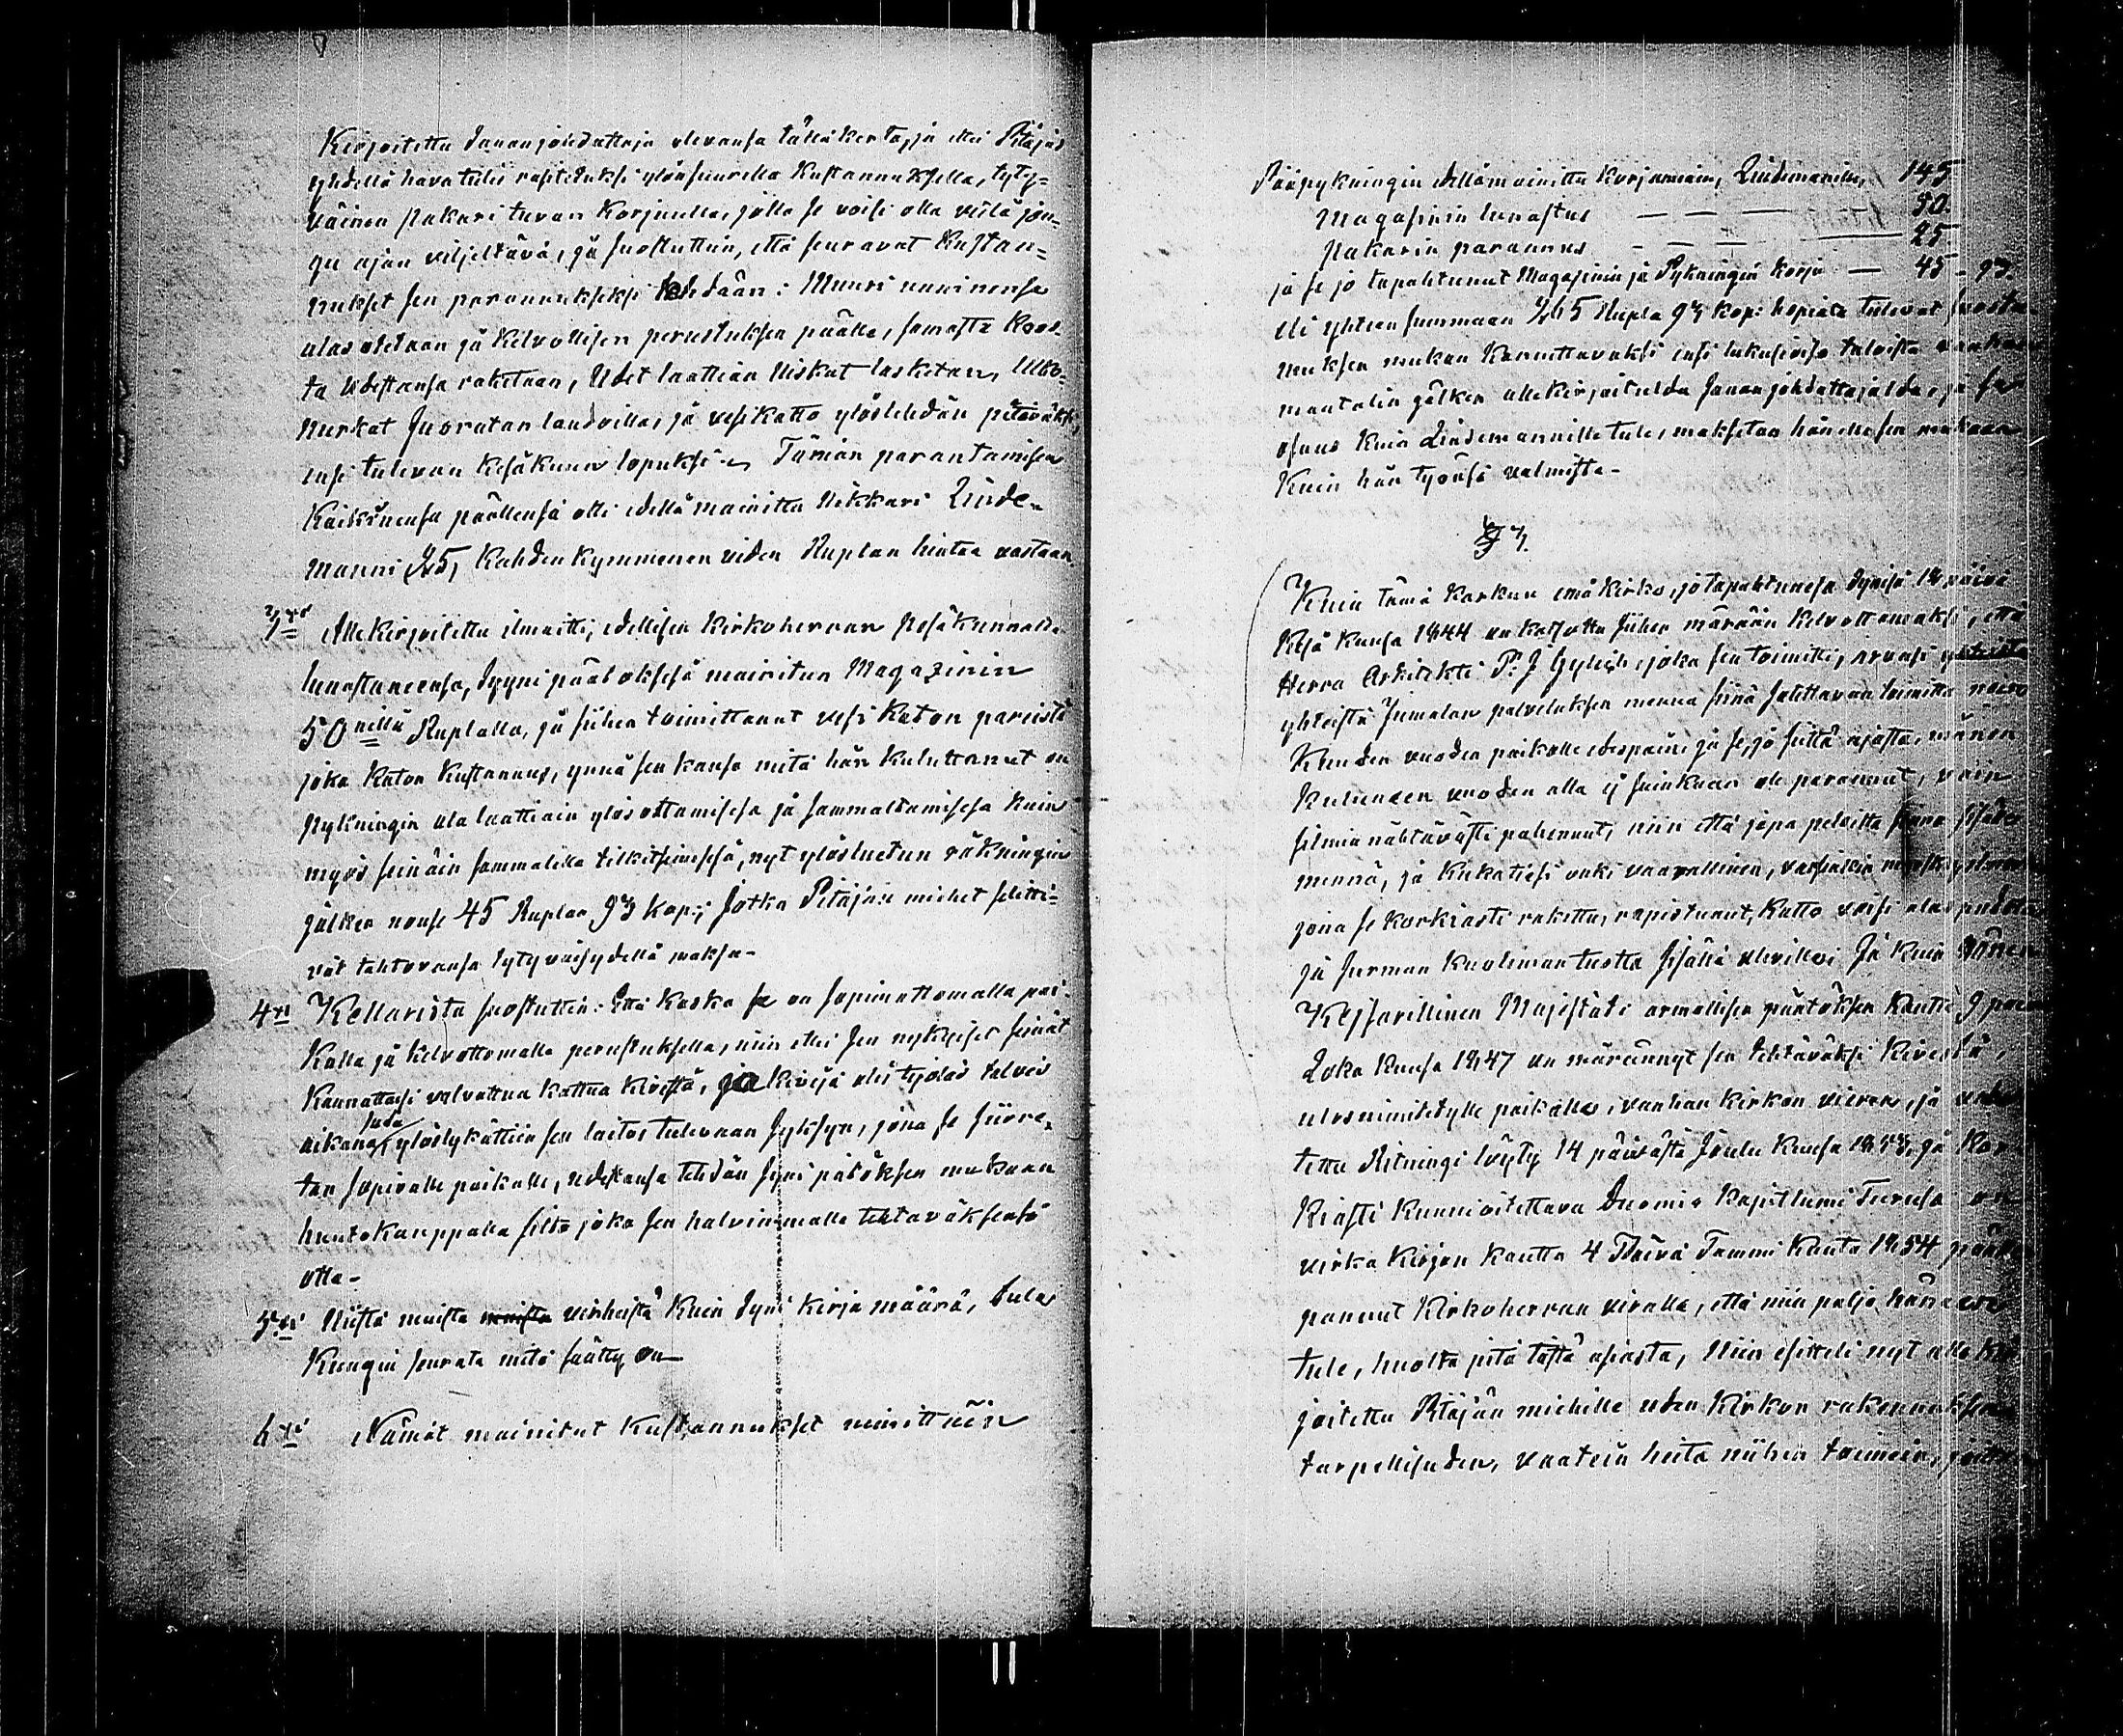 Kirjoitettu Sanan johdattaja olevansa tällä kerta, ja ettei Pitäjäs
yhdellä hava tulis rasitetuksi ylön suurella Kustannuksella, tyty=
väinen Pakari tuvan Korjuulla, jolla se voisi olla vielä jon-
gu ajan viljeltävä, ja suostuttiin, että seuravat Kustan=
nukset sen parannukseksi tehdään: Muuri uuninensa
alas otetaan ja kelvollisen perustuksen päälle, samasta Koos-
ta Udestansa raketaan, Udet laattian Niskat lasketan, Ulko-
Nurkat Juoratan laudoilla, ja vesikatto ylöstehdän pitäväksi
ensi tulevan kesäkuun lopuksi. Tämän parantamisen
Kaikkinensa päällensä otti edellä mainittu Nikkari Linde-
manni 25, Kahden kymmenen viiden Ruplan hintaa vastaan
3xi Allekirjoitettu ilmoitti, edellisen Kirkoherran Pesäkunnalda
lunastaneensa, Syyni päätöksesä mainitun Magazinin
50nellä Ruplalla, ja siihen toimittanut vesi Katon pareista
joka Katon Kustannus, ynnä sen kansa mitä hän kuluttanut on
Pykningin ala laattiain ylös ottamisesa ja sammaltamisesa kuin
myös seinäin sammalilla tilkitsemisesä, nyt ylösluetun räkningin
jälken nousee 45 Ruplan 93 kop:; Jotka Pitäjän miehet selitti=
vät tahtovansa tytyväisydellä maksa-
4xi Kellarista suostuttiin: Että koska se on sopimattomalla pai-
kalla ja kelvottomalla perustuksella, niin ettei sen nykyiset seinät
Kannattaisi valvattua kattua kivestä, ja kiviyä olis tyolas talvis
aikana, saada ylöslykättiin sen laitos tulevaan Syksyn, jona se siirre-
tan sopivalle paikalle, udestansa tehdän Syni pätöksen mukaan
huutokauppalla siltä joka sen halvimmalla tehtäväksensä
otta-
5xi Niistä muista virheistä kuin Syni kirja määrä, tulee
Kungin seurata mitä säätty on
6xi Nämät mainitut Kustannukset nimittäin
Pääpykningin edellämainittu Korjaamin, Lindemanille, 145
Magasinin lunastus — — — 50.
Pakarin parannus — — — 25
ja se jo tapahtunut Magasinin ja Pykningin korjo — 45 - 93.
eli yhteen summaan 265 Rupla 93 kop: hopiata tulevat suostu-
muksen mukan Kannettavaksi ensi lukusioisa taloista
mantalin jälken allekirjoitetulda Sanan johdattajalda, ja se
osuus kuin Lindemannille tule, maksetaan hänelle sen mukaan
Kuin hän työnsä valmista-
§ 7.
Kuin tämä Karkun emä kirko, jo tapahtuneesa Synisä 18 päivä
Kesä Kuusa 1844 on katsottu siihen määrään kelvottomaksi, että
Herra Arkitekti P. J. Gylich, joka sen toimitti, arvasi
yhteistä Jumalan palveluksen menua siinä sallittavan toimitta
Kuuden vuoden paikalle edespäin; ja se, jo sittä ajasta, männen
Kuluneen vuoden alla ej suinkaan ole parannut, vain
silmin nähtävästi pahennut, niin että jopa peloitta sinne sisälle
mennä, ja kukatiesi onki vaarallinen, varsinkin
jona se korkiasti rakettu, rapistunut, Katto voisi alas pudota
ja surman kuoleman tuotta sisällä olevillei; Ja kuin Hänen
Keisarillinen Majistäti armollisen päätöksen kautta 9 päivä
Loka Kuusa 1847 on määrännyt sen tehtäväksi Kivestä,
ulosnimitetylle paikalle, vanhan Kirkon vieren, ja
tettu Ritningi löyty 14 päivästä Joulu Kuusa 1853, ja Kor-
kiasti Kunnioitettava Duomio Kapitlumi Turusa on
virka kirjan kautta 4 Päivä Tammi Kuuta 1854 päälle
pannut Kirkoherran viralla, että niin paljo hänen
tule, huolta pitä tästä asiasta, Niin esitteli nyt alle kir-
joitettu Pitäjän miehille uden Kirkon rakennuksen
tarpellisuden, vaatein heitä niihin toimiin, joita